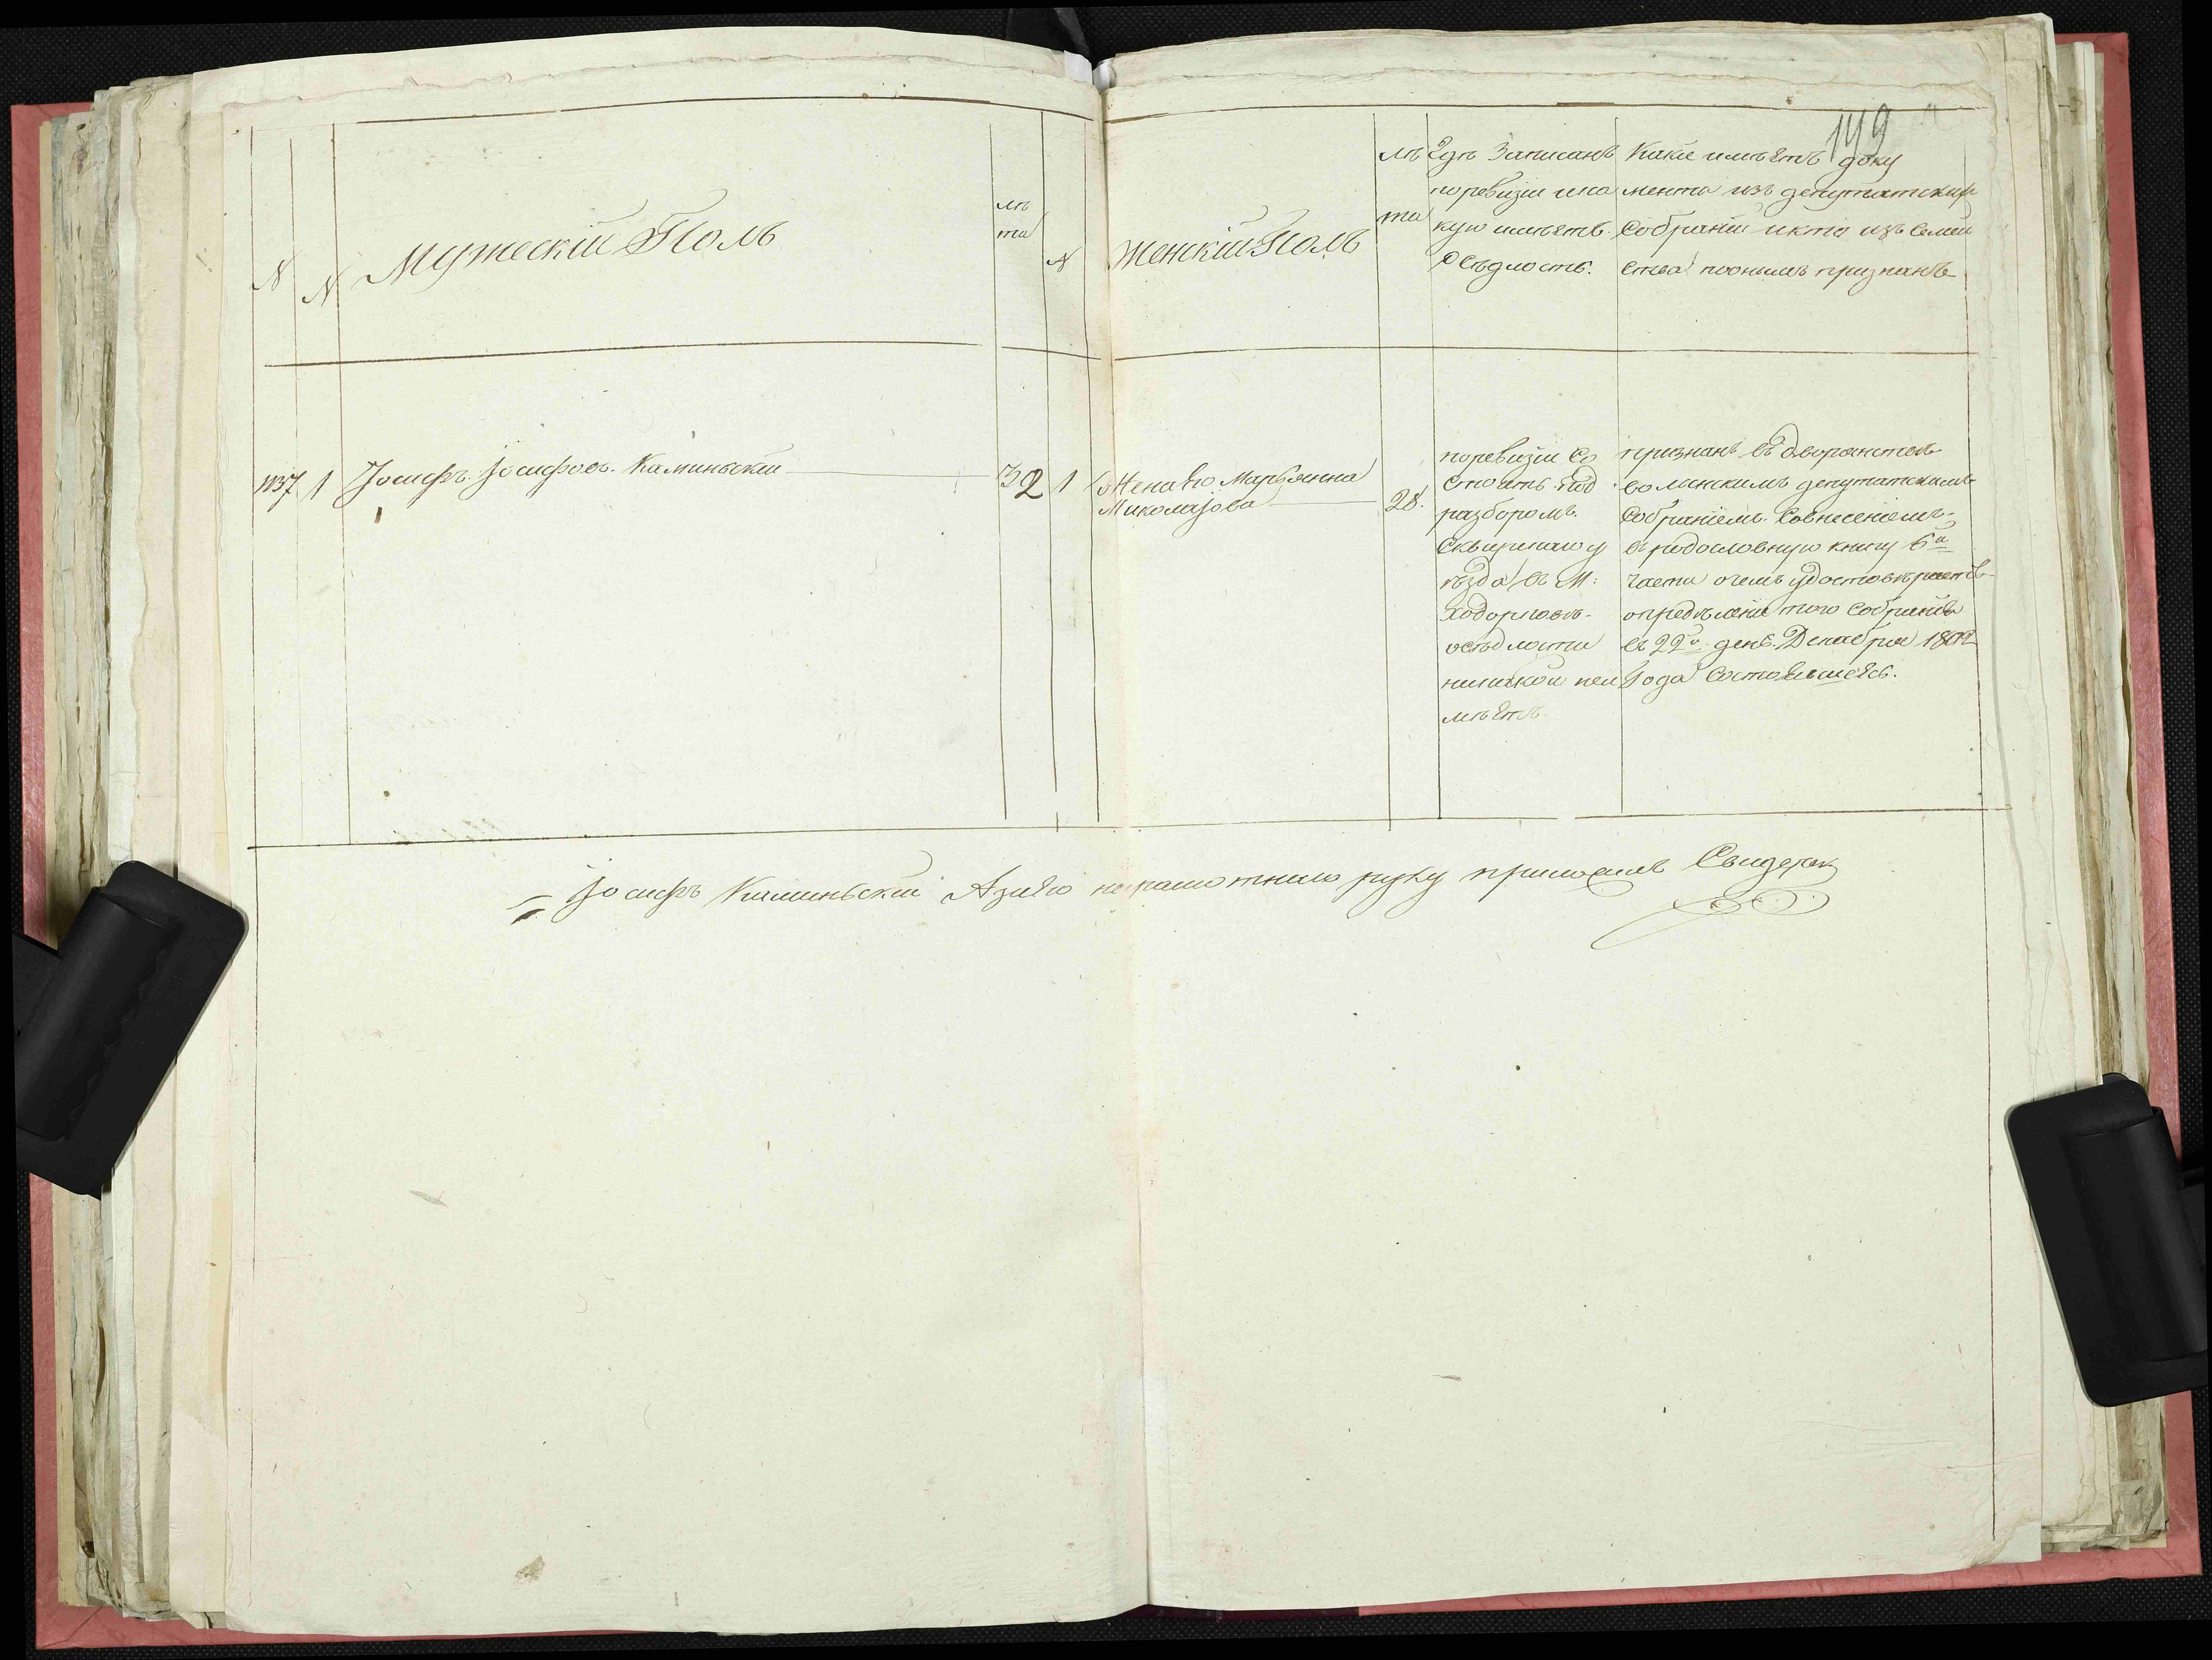 149
N
N
Мужескій Полъ
лѣ
та
N
Женскій Полъ
лѣ
та
Гдѣ Записанъ
поревизіи ика
кую имѣетъ
Осѣдлость.
Какіе имѣетъ доку
мента изъ депутатскихъ
Собраніи икто изъ Семей
ства пооныиъ признанъ
1137 1 Іосифъ Іосифовъ Каминьскіи 32 1 Жена Его Марьянна
Миколаjова 28.
поревизіи Со
стоитъ под
разборомъ.
Сквирскаго у
ѣзда въ М:
Ходорковѣ
осѣдлости
никакой неи
мѣетъ.
признанъ въ дворянствѣ
волынскимъ депутатскимъ
Собраніемъ Совнесеніемъ
въ родословную книгу 6й
части очемъ удостовѣряетъ
опредѣленіе того Собранія
въ 22й день Декабря 1802
Года Состоявшеесь.
Іосифъ Каминьскіи Азаего неграмотнаго руку приложилъ